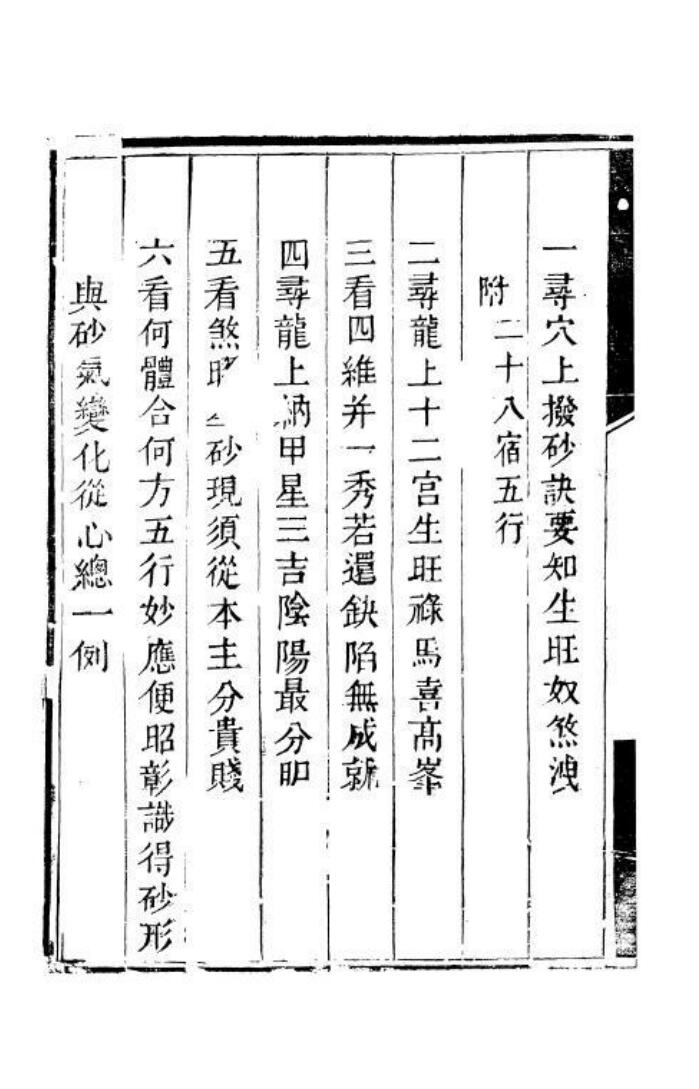 一尋穴上撥砂訣要知生旺奴煞洩
附二十八宿五行
二尋龍上十二宮生旺祿馬喜高峯
三看四維并一秀若還缺陷無成就
四尋龍上納甲星三吉陰陽最分明
五看煞砂現須從本主分貴賤
六看何體合何方五行妙應便昭彰識得砂形
與砂氣變化從心總一例